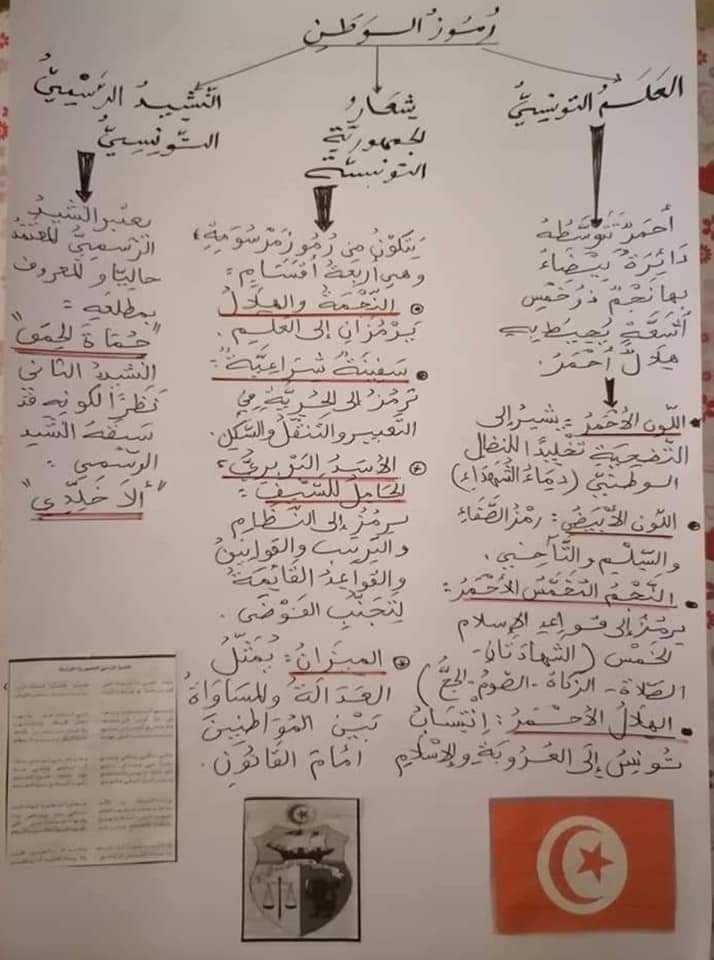 رُمُوزُ الوَطَنِ
العَلَمُ التونِسِيُّ
أَحْمَرٌ تَتَوَسَّطُهُ
دَائِرَةٌ بَيْضَاءُ
بِهَا نَجْمٌ ذُو خَمْسِ
أَشِعَّةٍ يُحِيطُ بِهِ
هِلَالٌ أَحْمَرُ.
اللّون الأَحْمَرُ: يشير إلى
التَّضْحِيَةِ تَخْلِيدًا لِلنِّضَالِ
الوَطَنِيِّ (دِمَاءُ الشُّهَدَاءِ)
اللّون الأَبْيَضُ: رَمْزُ الصَّفَاءِ
وَالسِّلْمِ والتَّآخِي.
النَّجْمُ المُخَمَّسُ الأَحْمَرُ:
يرمُزُ إلى قَوَاعِدِ الإسلام
الخَمْسِ (الشهادَتَانِ-
الصَّلَاة-الزَّكَاة-الصَّوْمُ-الحَجُّ)
الهِلَالُ الأَحْمَرُ: اِنْتِسَابُ
تُونِسَ إِلَى العُرُوبَةِ والإسْلَامِ
شِعَارُ
الجمهوريّةِ
التونسيّةِ
يَتَكَوَّنُ مِن رُمُوزٍ مَرْسُومَةٍ،
وهي أربعةُ أَقْسَامٍ:
النَّجْمَةُ والهِلَالُ
يَرْمُزَانِ إلى العَلَمِ.
سَفِينَةٌ شِرَاعِيَّةٌ:
تَرْمُزُ إلى الحُرِّيَّةِ فِي
التَّعْبِيرِ والتَّنَقُّلِ والسَّكَنِ.
الأَسَدُ البَرْبَرِيُّ،
الحَامِلُ لِلسَّيْفِ:
يرمُزُ إلى النِّظَامِ
والتَّرْتِيبِ والقَوَانِينِ
والقَوَاعِدِ القَائِمَةِ
لِتَجَنُّبِ الفَوْضَى.
الميزَانُ: يُمَثِّلُ
العَدَالَةَ والمُسَاوَاةَ
بَيْنَ المُوَاطِنِينَ
أَمَامَ القَانُونِ.
النَّشِيدُ الرَّسْمِيُّ
التّونِسِيُّ
يعتبر النشيدُ
الرّسْمِيُّ المُعْتَمَدُ
حاليّا و المعروف
بمطلعه:
"حُمَاةَ الحِمَى"
النشيدُ الثاني
نَظَرًا لكونِهِ قَدْ
سَبَقَهُ النشيد
الرّسمي:
"أَلَا خَلِّدِي"